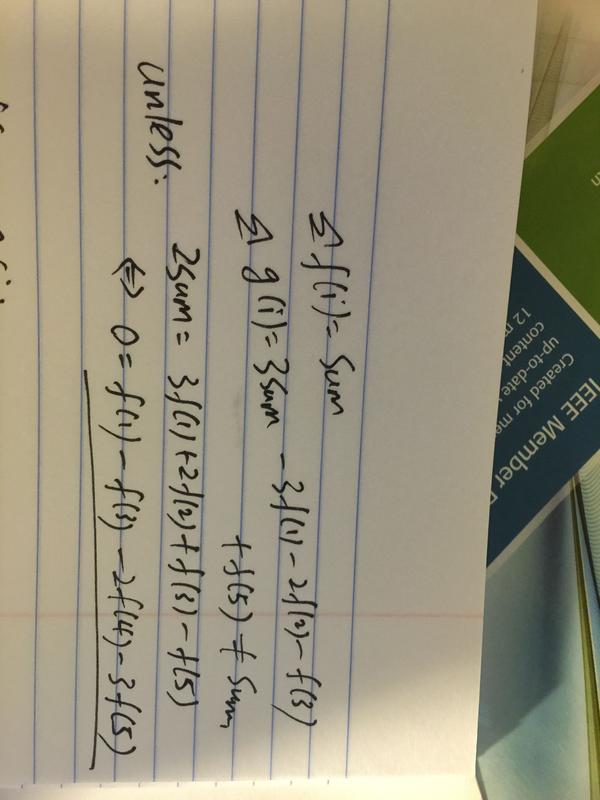 Σ f(i) = Sum
Σ g(i) = 3sum - 3f(1) - 2f(2) - f(3)
+ f(5) ≠ Sum
unless:
2sum = 3f(1) + 2f(2) + f(3) - f(5)
⇔ 0 = f(1) - f(3) - 2f(4) - 3f(5)
IEEE Member
Created for me
up-to-date
content
12